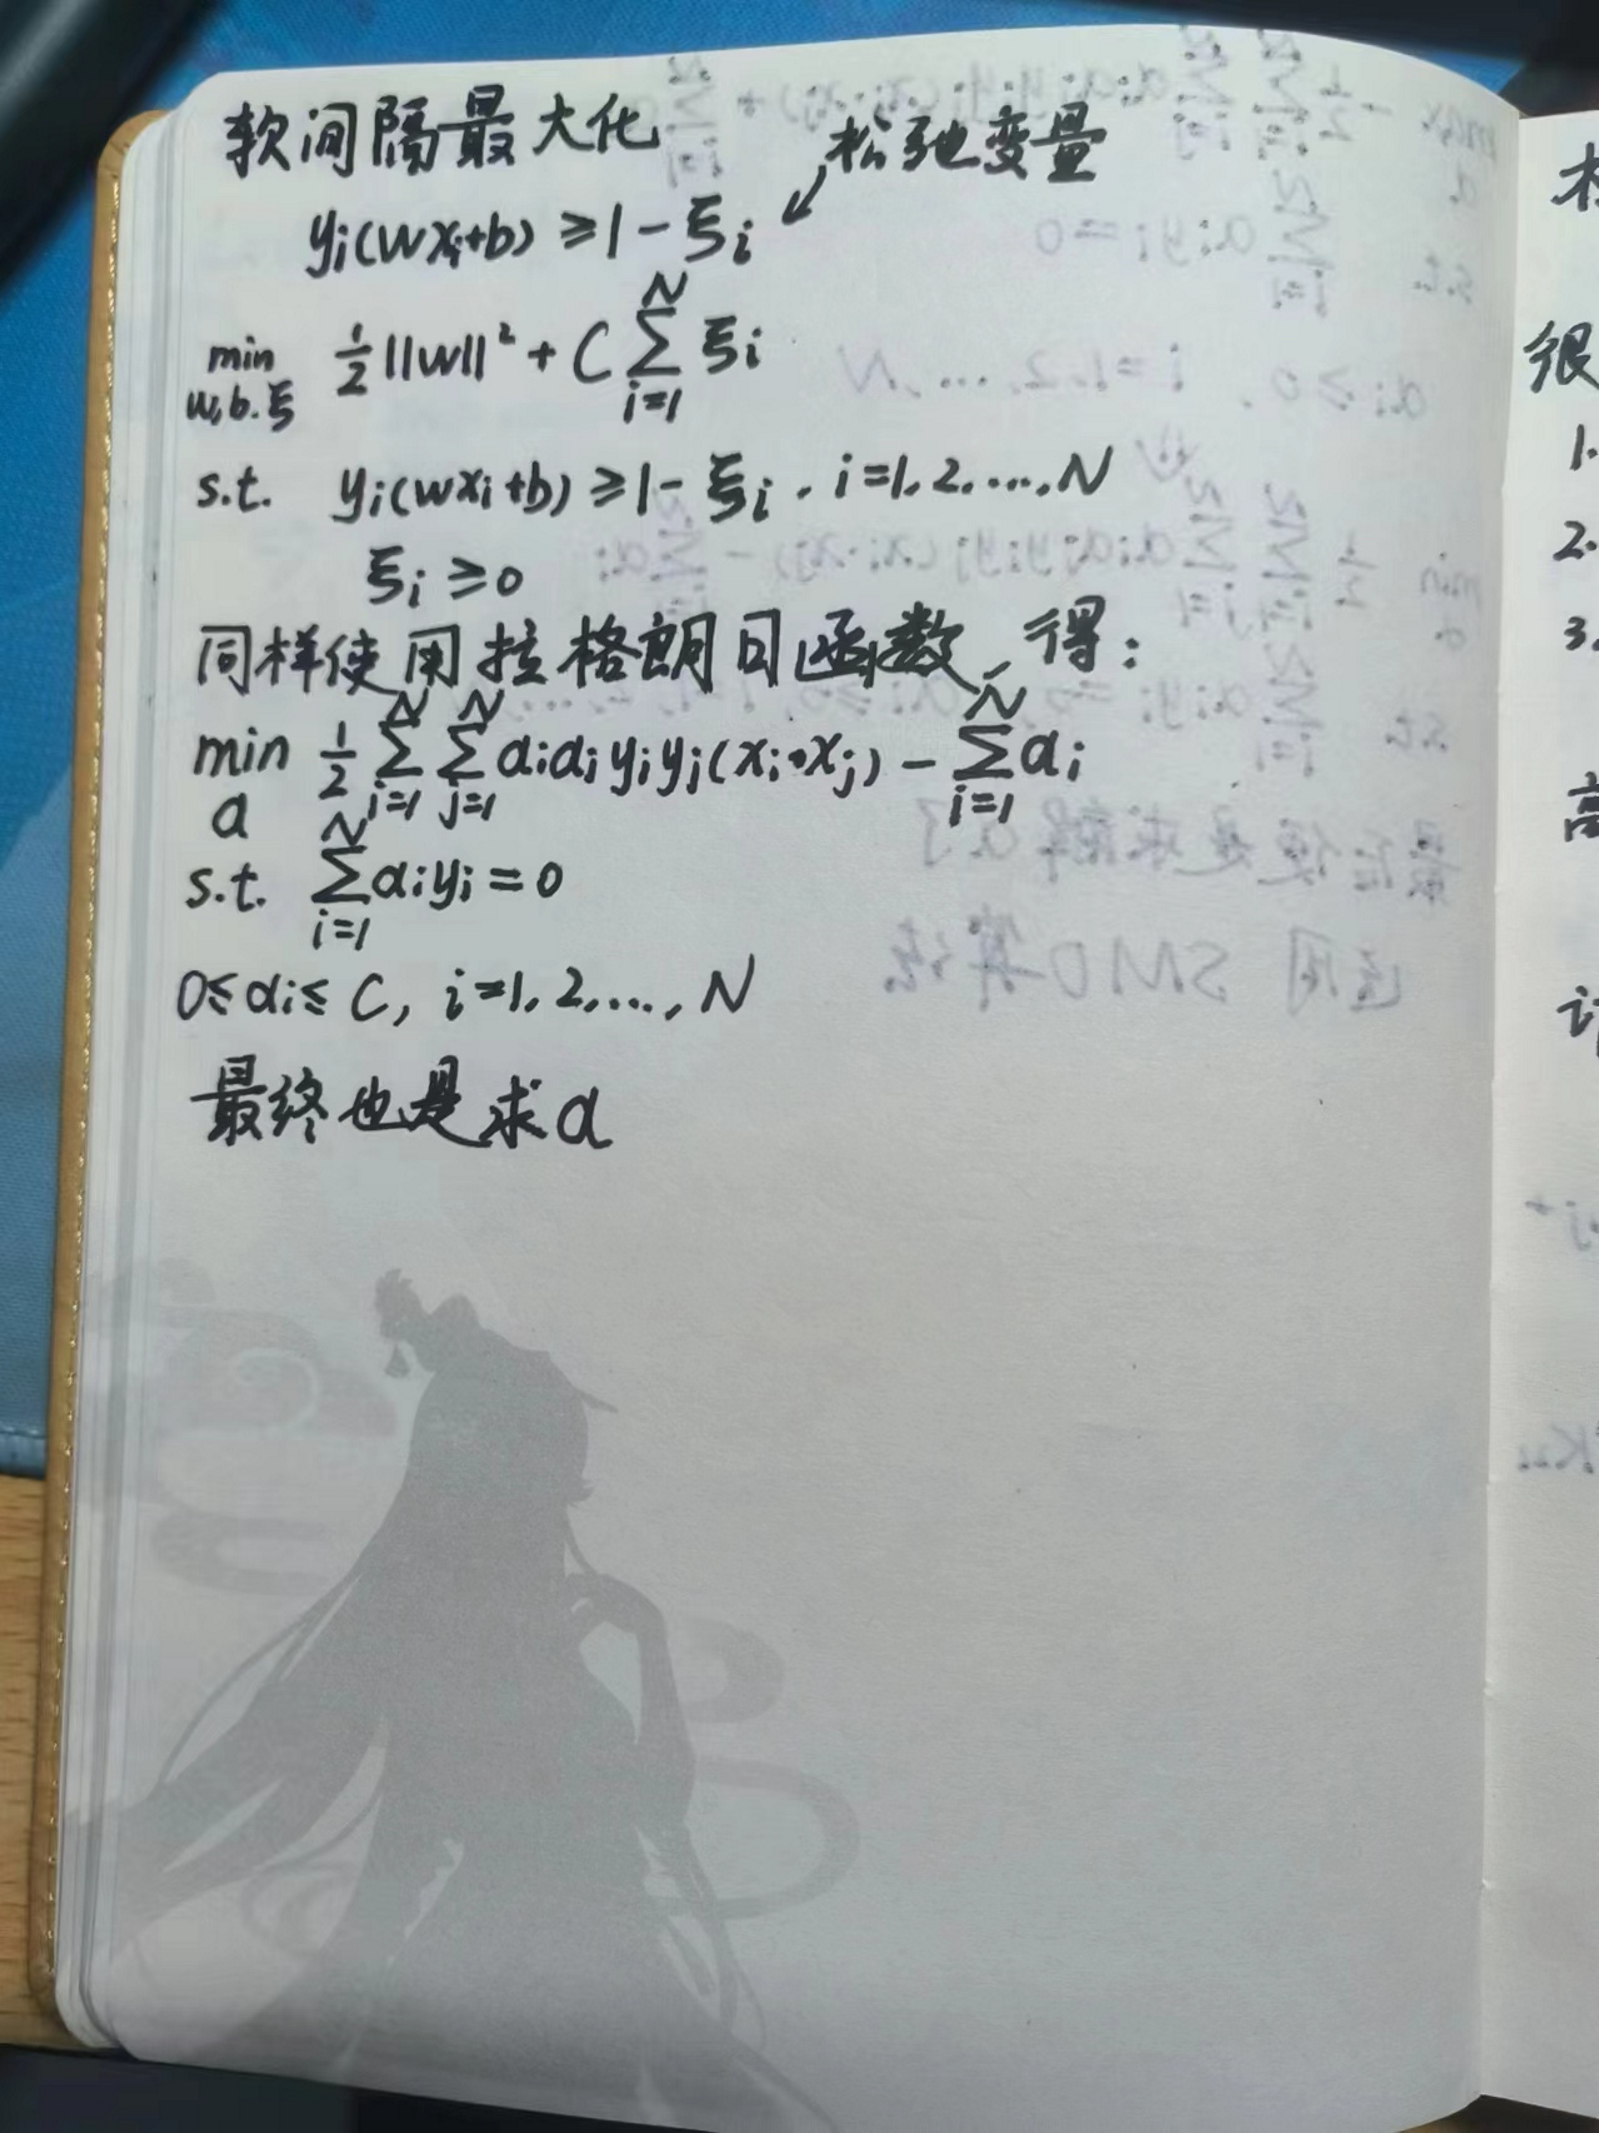 软间隔最大化
松弛变量
yᵢ(wxᵢ+b) ≥ 1 - ξᵢ
min w,b.ξ ½||w||² + C ∑ᵢ₌₁ᴺ ξᵢ
s.t. yᵢ(wxᵢ+b) ≥ 1 - ξᵢ . i=1.2....,N
ξᵢ ≥ 0
同样使用拉格朗日函数,得:
min α ½ ∑ᵢ₌₁ᴺ ∑ⱼ₌₁ᴺ αᵢαⱼyᵢyⱼ(xᵢ·xⱼ) - ∑ᵢ₌₁ᴺ αᵢ
s.t. ∑ᵢ₌₁ᴺ αᵢyᵢ = 0
0≤αᵢ≤C, i=1.2,...,N
最终也是求α
很
1.
2.
3.
高